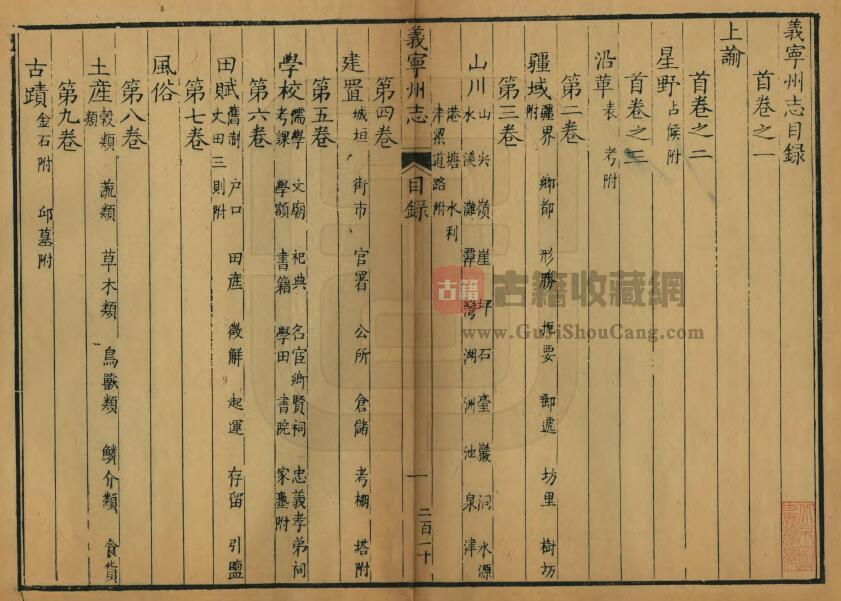 義寧州志目録
首卷之一
上諭
首卷之二
星野 占候附
首卷之三
沿革 表 考附
第二卷
疆域 疆界 鄉都 形勝 扼要 郵遞 坊里 樹坊附
第三卷
山川 山 尖 嶺 崖 坪 石 臺 巖 洞 水源
水 溪 灘 潭 灣 湖 洲 池 泉 津
港 塘 水利
津梁道路附
義寧州志
目録
一
二百一十
第四卷
建置 城垣 街市 官署 公所 倉儲 考棚 塔附
第五卷
學校 儒學 文廟 祀典 名宦鄉賢祠 忠義孝弟祠
考課 學額 書籍 學田 書院 家塾附
第六卷
田賦 舊制 戶口 田產 徵解 起運 存留 引鹽
丈田三則附
第七卷
風俗
第八卷
土產 穀類 蔬類 草木類 鳥獸類 鱗介類 食貨類
第九卷
古蹟 金石附 邱墓附
古籍
古籍收藏網
www.GuJiShouCang.com